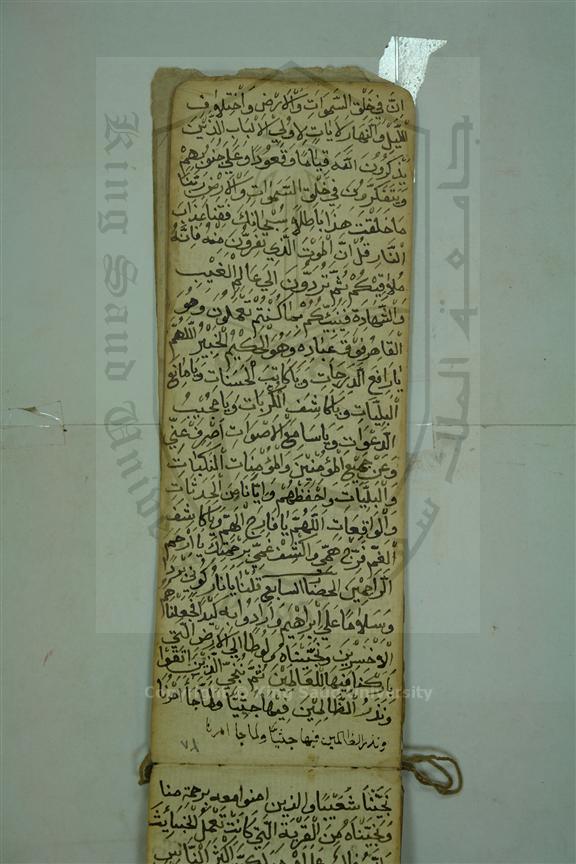 ان في خلق السموات والارض واختلاف
الليل والنهار لايات لاولي الالباب الذين
يذكرون الله قياما وقعودا وعلى جنوبهم
ويتفكرون في خلق السموات والارض ربنا
ما خلقت هذا باطلا سبحانك فقنا عذاب
النار قل ان الموت الذي تفرون منه فانه
ملاقيكم ثم تردون الى عالم الغيب
والشهادة فينبئكم بما كنتم تعملون وهو
القاهر فوق عباده وهو الحكيم الخبير اللهم
يا رافع الدرجات ويا كاتب الحسنات ويا مانع
البليات ويا كاشف الكربات ويا مجيب
الدعوات ويا سامع الاصوات اصرف عني
وعن جميع المؤمنين والمؤمنات النكبات
والبليات واحفظهم وايانا من الحدثات
والواقعات اللهم يا فارج الهم ويا كاشف
الغم فرج همي واكشف غمي برحمتك يا ارحم
الراحمين الحصن السابع قلنا يا نار كوني بردا
وسلاما على ابراهيم وارادوا به كيدا فجعلناهم
الاخسرين ونجيناه ولوطا الى الارض التي
باركنا فيها للعالمين ثم ننجي الذين اتقوا
ونذر الظالمين فيها جثيا ولما جاء امرنا
ونذر الظالمين فيها جثيا ولما جا امرنا
٧٨
نجينا شعيبا والذين امنوا معه برحمة منا
ونجيناه من القرية التي كانت تعمل الخبائث
اكثر الناس
King Saud University
جامعة الملك سعود
Copyright © King Saud University